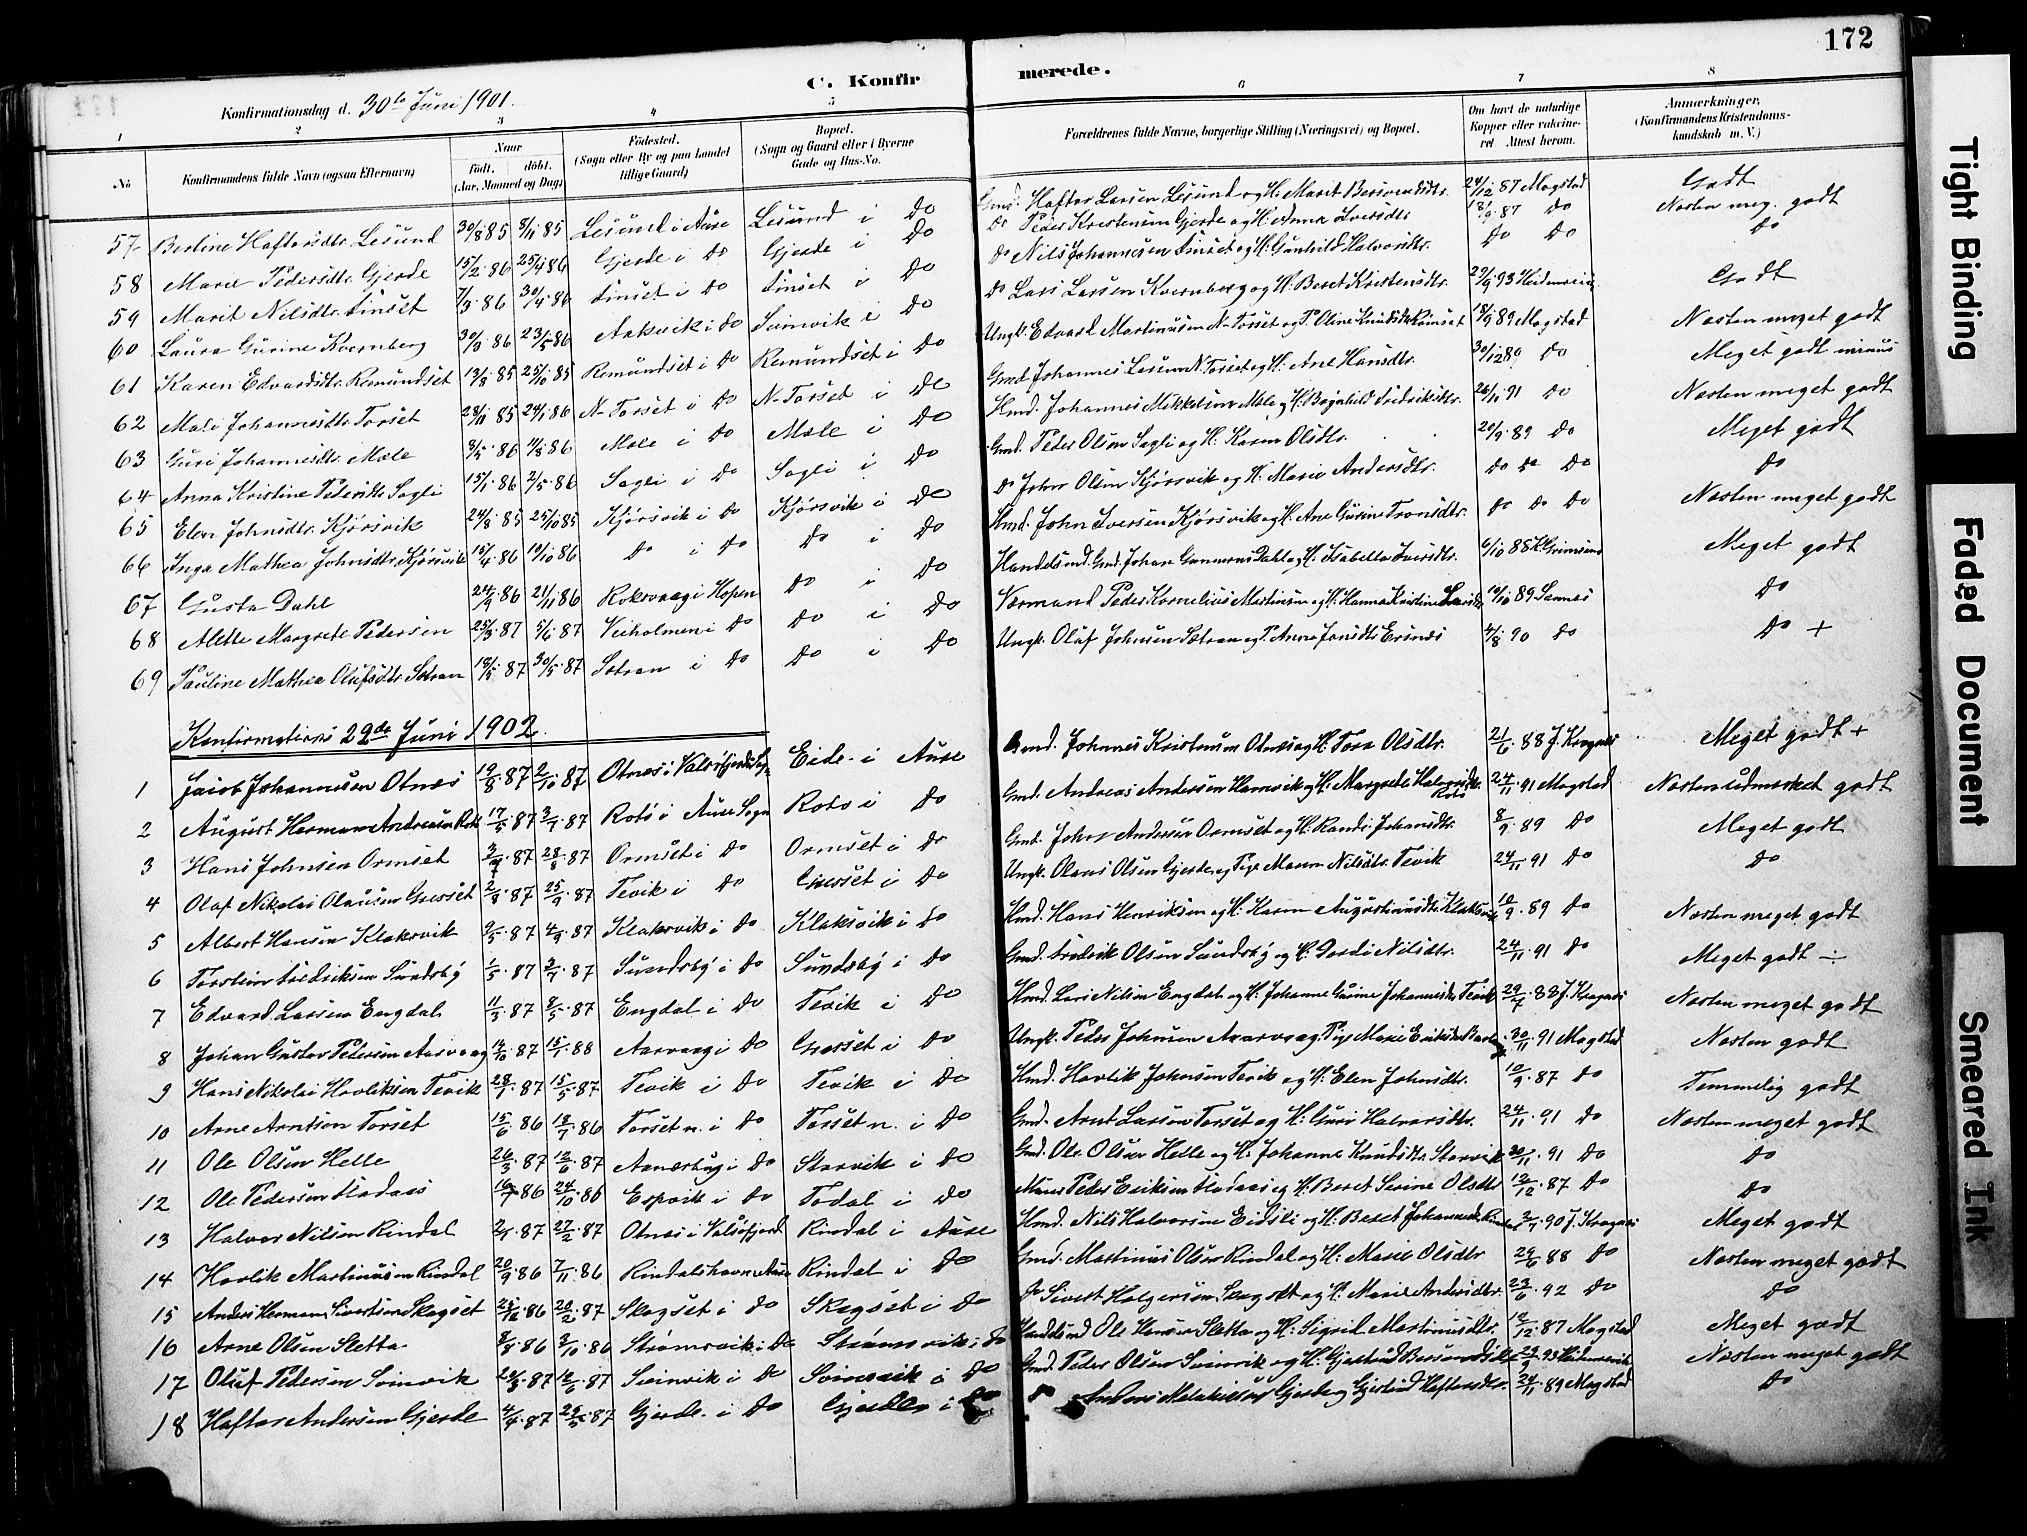 172
C. Konfirmerede.
Konfirmationsdag d. 30te Juni 1901.
1 2 3 4 5 6 7 8
No
Konfirmandens fulde Navn (ogsaa Efternavn)
Naar født. døbt. (Aar, Maaned og Dag)
Fødested. (Sogn eller By og paa Landet tillige Gaard)
Bopæl. (Sogn og Gaard eller i Byerne Gade og Hus-No.
Forældrenes fulde Navne, borgerlige Stilling (Næringsvei) og Bopæl.
Om havt de naturlige Kopper eller vaccineret. Attest herom.
Anmærkninger. (Konfirmandens Kristendomskundskab m. V.)
57 Bertine Haftorsdtr. Lesund 30/8 85 8/11 85 Lesund i Aure Lesund i Do Gmd. Haftor Larsen Lesund og H. Marit Bersvendsdtr. 24/12 87 Magstad Godt
58 Marie Pedersdtr. Gjerde 15/2 86 25/4 86 Gjerde i Do Gjerde i Do Do Peder Kristensen Gjerde og H. Anna Iversdtr 18/9 87 Do Næsten meg. godt
59 Marit Nilsdtr. Finset 7/3 86 30/4 86 Finset i Do Finset i Do Do Nils Johannesen Finset og H. Gunhild Halvorsdtr. Do Do Do
60 Laura Gurine Kvernberg 30/3 86 23/5 86 Aakvik i Do Svinvik i Do Do Lars Larsen Kvernberg og H. Beret Kristensdtr. 29/9 93 Heidenreich Godt
61 Karen Edvardsdtr. Romundset 13/8 85 25/10 85 Romundset i Do Romundset i Do Ungk. Edvard Martinusen N-Torset og P. Oline Knudsdtr Romset 18/9 89 Magstad Næsten meget godt
62 Mali Johannesdtr. Torset 28/11 85 24/1 86 N-Torset i Do N-Torset i Do Gmd Johannes Larsen N. Torset og H. Ane Hansdtr. 30/12 89 Do Meget godt minus
63 Guri Johannesdtr. Mæle 3/5 86 11/8 86 Mæle i Do Mæle i Do Hmd. Johannes Mikkelsen Mæle og H. Ragnhild Fredriksdtr. 26/11 91 Do Næsten meget godt
64 Anna Kristine Pedersdtr Sagli 13/1 86 2/5 86 Sagli i Do Sagli i Do Gmd. Peder Olsen Sagli og H. Karen Olsdtr. 20/9 89 Do Meget godt
65 Elen Johnsdtr. Kjørsvik 24/8 85 25/10 85 Kjørsvik i Do Kjørsvik i Do Do John Olsen Kjørsvik og H. Marie Andersdtr. Do Do Do Do
66 Inga Mathea Johnsdtr. Kjørsvik 15/4 86 10/10 86 Do i Do Do i Do Hmd. John Iversen Kjørsvik og H. Ane Gurine Tronsdtr. Do Do Do Næsten meget godt
67 Gusta Dahl 24/9 86 21/11 86 Roksvaag i Hopen Do i Do Handelsmd. Gmd. Johan Gunnerus Dahl og H. Isabella Iversdtr. 6/10 88 K. Grimsmo Meget godt
68 Alette Margrete Pedersen 25/3 87 5/6 87 Veiholmen i Do Do i Do Værmand Peder Kornelius Martinsen og H. Hanna Kristine Larsdtr 10/10 89 Sannes Do
69 Pauline Mathea Olufsdtr. Sætran 18/5 87 30/5 87 Sætran i Do Do i Do Ungk. Oluf Johnsen Sætran og P. Anna Jonsdtr. Ersnes 4/8 90 Do Do +
Konfirmations 29de Juni 1902.
1 Jacob Johannesen Otnes 19/8 87 2/10 87 Otnes i Valsøfjords Sogn Eide i Aure Gmd. Johannes Kristensen Otnes og H. Tore Olsdtr. 21/6 88 J. Kragnes Meget godt +
2 August Herman Andreasen Rotø 17/5 87 3/7 87 Rotø i Aure Sogn Rotø i Do Gmd. Andreas Andersen Hamnvik og H. Margrete Halvorsdtr. Rotø 24/11 91 Magstad Næsten udmærket godt
3 Hans Johnsen Ormset 3/7 87 28/8 87 Ormset i Do Ormset i Do Gmd. John Andersen Ormset og H. Randi Johansdtr. 8/9 89 Do Meget godt
4 Olaf Nikolai Olausen Grøsset 2/8 87 25/9 87 Tevik i Do Grøsset i Do Ungk. Olaus Olsen Gjerde og Pige Maren Nilsdtr. Tevik 24/11 91 Do Do
5 Albert Hansen Klaksvik 9/5 87 4/9 87 Klaksvik i Do Klaksvik i Do Hmd. Hans Henriksen og H. Karen Augustinusdtr. Klaksvik 10/9 89 Do Næsten meget godt
6 Torstein Fredriksen Sundsby 1/5 87 3/7 87 Sundsby i Do Sundsby i Do Gmd. Fredrik Olsen Sundsby og H. Dordi Nilsdtr. 24/11 91 Do Meget godt ÷
7 Edvard Larsen Engdal 11/3 87 8/5 87 Engdal i Do Tevik i Do Hmd. Lars Nilsen Engdal og H. Johanne Gurine Johannesdtr Tevik 29/7 88 J. Kragnes Næsten meget godt
8 Johan Gustav Pedersen Aarvaag 14/10 87 15/1 88 Aarvaag i Do Grøsset i Do Ungk. Peder Johnsen Aarvaag, Pige Marie Eriksdtr 30/11 91 Magstad Næsten godt
9 Hans Nikolai Havliksen Tevik 28/1 87 15/5 87 Tevik i Do Tevik i Do Hmd. Havlik Johnsen Tevik og H. Elen Johnsdtr. 10/9 87 Do Temmelig godt
10 Arne Arntsen Torset 15/6 86 18/7 86 Torset n. i Do Torset n. i Do Gmd. Arnt Larsen Torset og H. Guri Halvorsdtr. 24/11 91 Do Næsten meget godt
11 Ole Olsen Helle 26/3 87 12/6 87 i Do Storvik i Do Gmd. Ole Olsen Helle og H. Johanne Knudsdtr. Storvik 30/11 91 Do Do
12 Ole Pedersen Hadaas 16/7 86 24/10 86 Espvik i Do Todal i Do Peder Eriksen Hadaas og H. Beret Serine Olsdtr 12/12 87 Do Do
13 Halvor Nilsen Rindal 2/1 87 27/2 87 Otnes i Valsøfjord Rindal i Aure Hmd. Nils Halvorsen Eidsli og H. Beret Johannesdtr. 2/7 90 J. Kragnes Meget godt
14 Havlik Martinusen Rindal 20/9 86 7/11 86 Rindalshavn Aure Rindal i Do Gmd. Martinus Olsen Rindal og H. Marie Olsdtr 29/6 88 Do Næsten meget godt
15 Anders Herman Sivertsen Skogset 28/12 86 20/2 87 Skogset i Do Skogset i Do Do Sivert Holgersen Skogset og H. Marie Andersdtr. 23/6 92 Do Do
16 Arne Olsen Sletta 8/8 86 3/10 86 Strømsvik i Do Strømsvik i Do Ole Hansen Sletta og H. Sigrid Martinusdtr. 12/12 87 Magstad Meget godt
17 Oluf Pedersen Svinvik 24/3 87 12/6 87 Svinvik i Do Svinvik i Do Gmd. Peder Olsen Svinvik og H. Gjertrud Bersvendsdtr 29/9 93 Heidenreich Næsten meget godt
18 Haftor Andersen Gjerde 4/4 87 29/5 87 Gjerde i Do Gjerde i Do Do Anders Malakiesen Gjerde og Gjertrud Haftorsdtr. 24/11 89 Magstad Do
Tight Binding
Faded Document
Smeared Ink